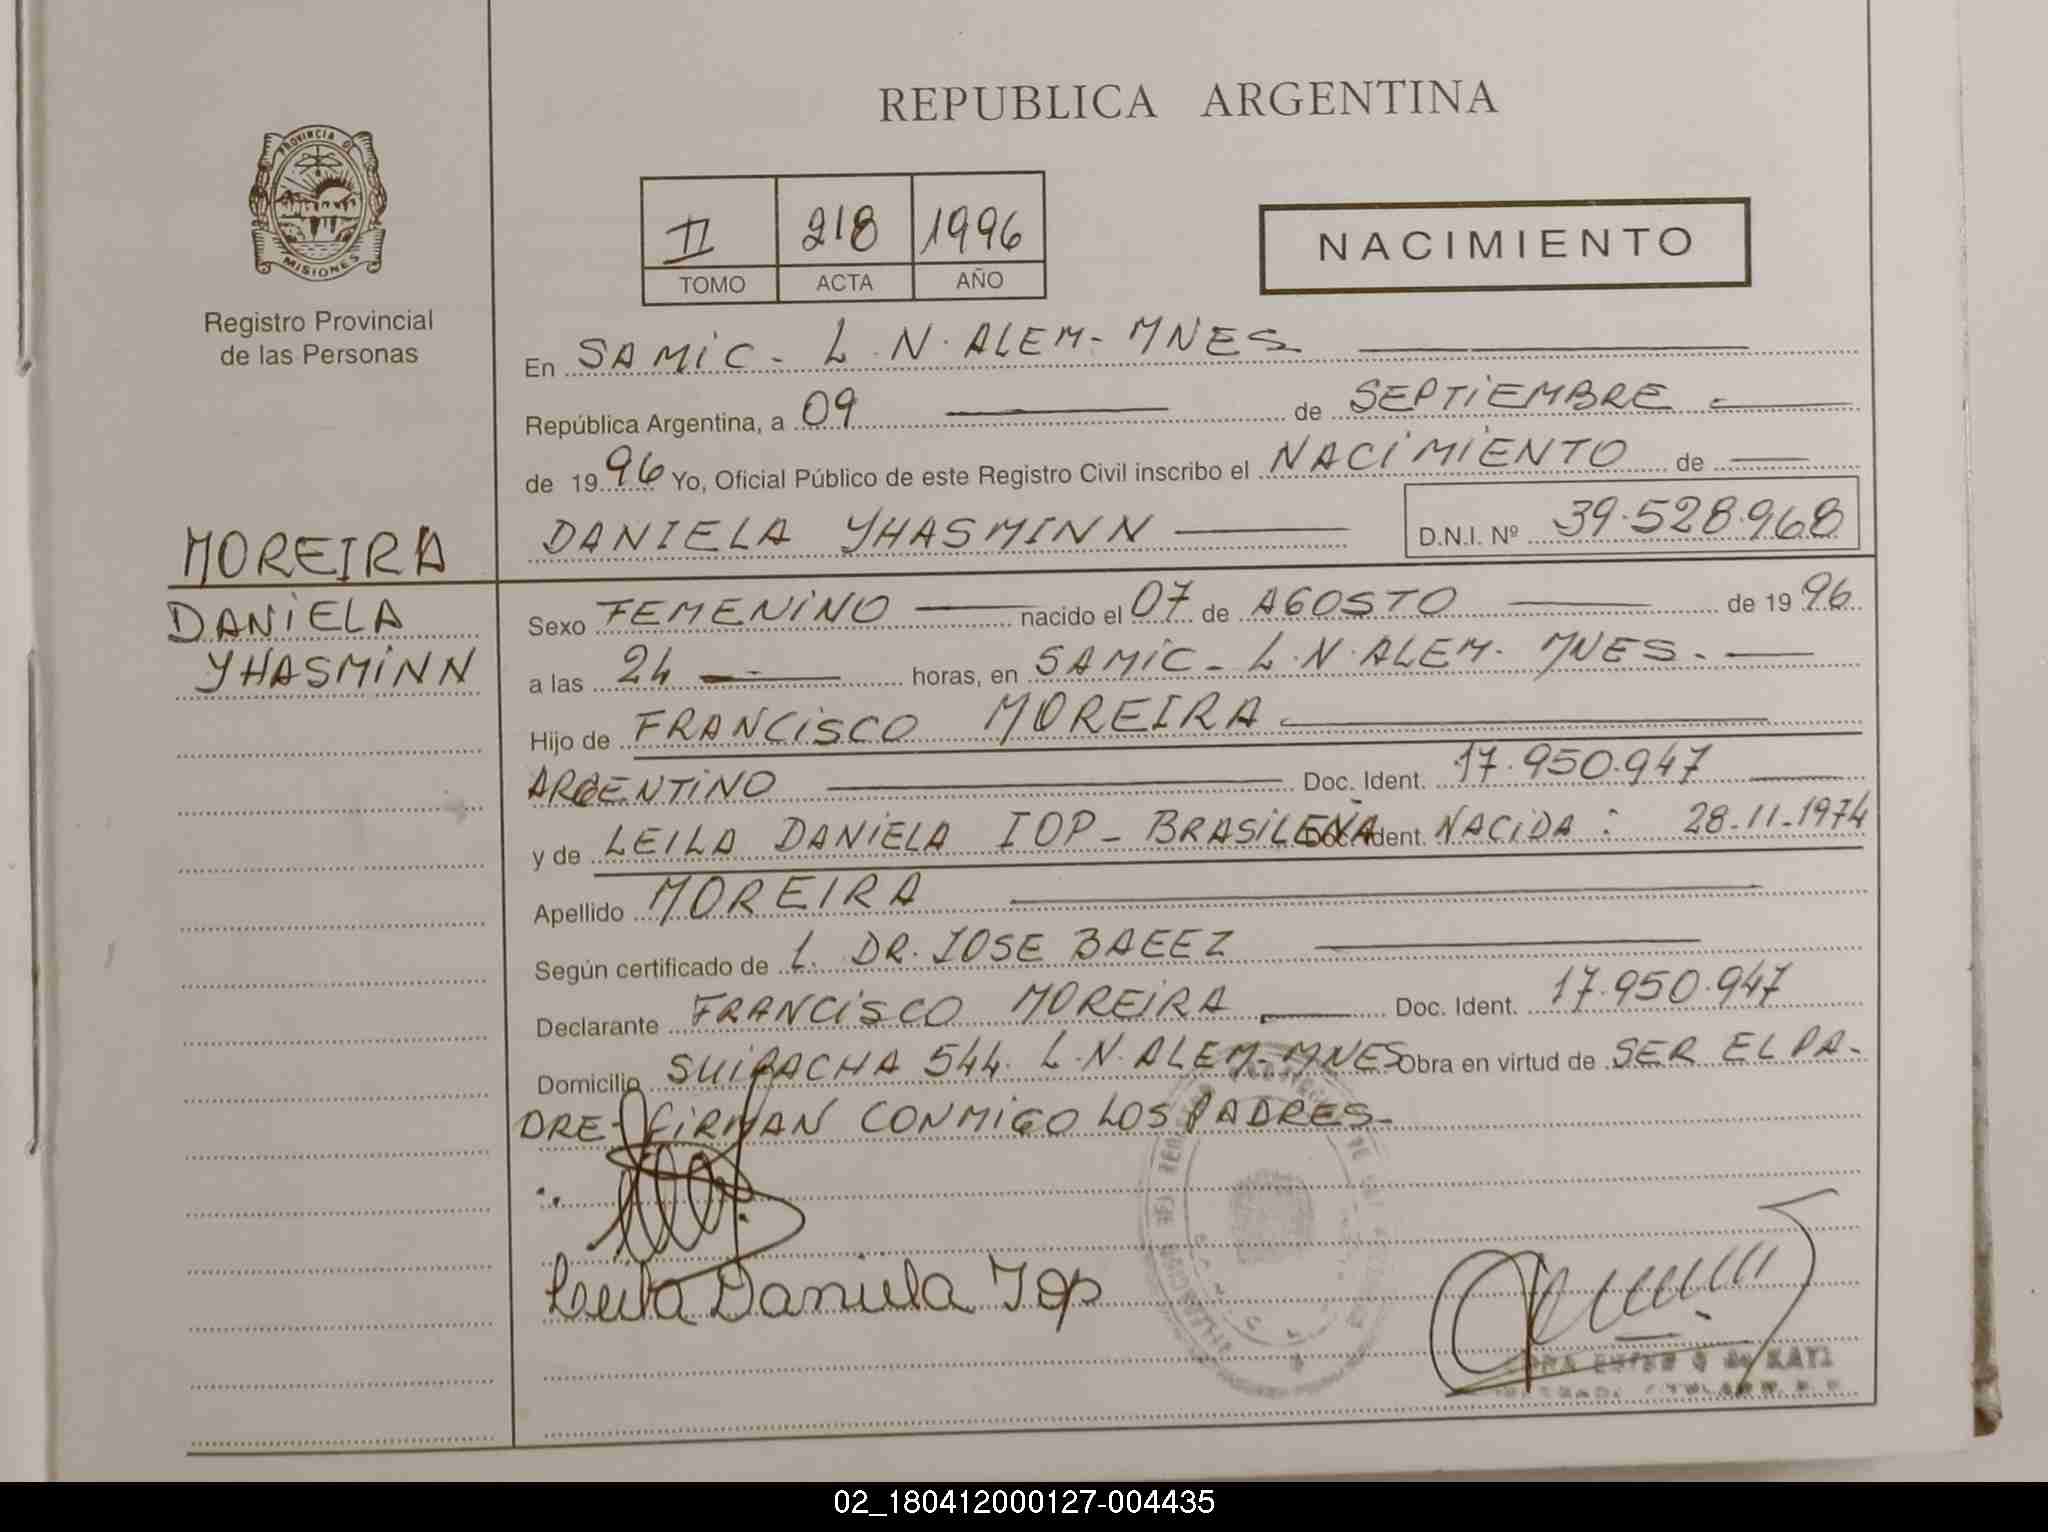 REPUBLICA ARGENTINA
PROVINCIA D
MISIONES
Registro Provincial
de las Personas
II 218 1996
TOMO ACTA AÑO
NACIMIENTO
En SAMIC - L.N. ALEM - MNES
República Argentina, a 09 de SEPTIEMBRE
de 1996 Yo, Oficial Público de este Registro Civil inscribo el NACIMIENTO de
DANIELA YHASMINN D.N.I. Nº 39.528.968
MOREIRA
DANIELA
YHASMINN
Sexo FEMENINO nacido el 07 de AGOSTO de 1996
a las 24 horas, en SAMIC - L.N. ALEM - MNES -
Hijo de FRANCISCO MOREIRA
ARGENTINO Doc. Ident. 17.950.947
y de LEILA DANIELA IOP - BRASILEÑA Doc. Ident. NACIDA : 28-11-1974
Apellido MOREIRA
Según certificado de L. DR. JOSE BAEEZ
Declarante FRANCISCO MOREIRA Doc. Ident. 17.950.947
Domicilio SUIPACHA 544. L.N. ALEM - MNES Obra en virtud de SER EL PA-
DRE - FIRMAN CONMIGO LOS PADRES -
Leila Daniela Iop
02_180412000127-004435